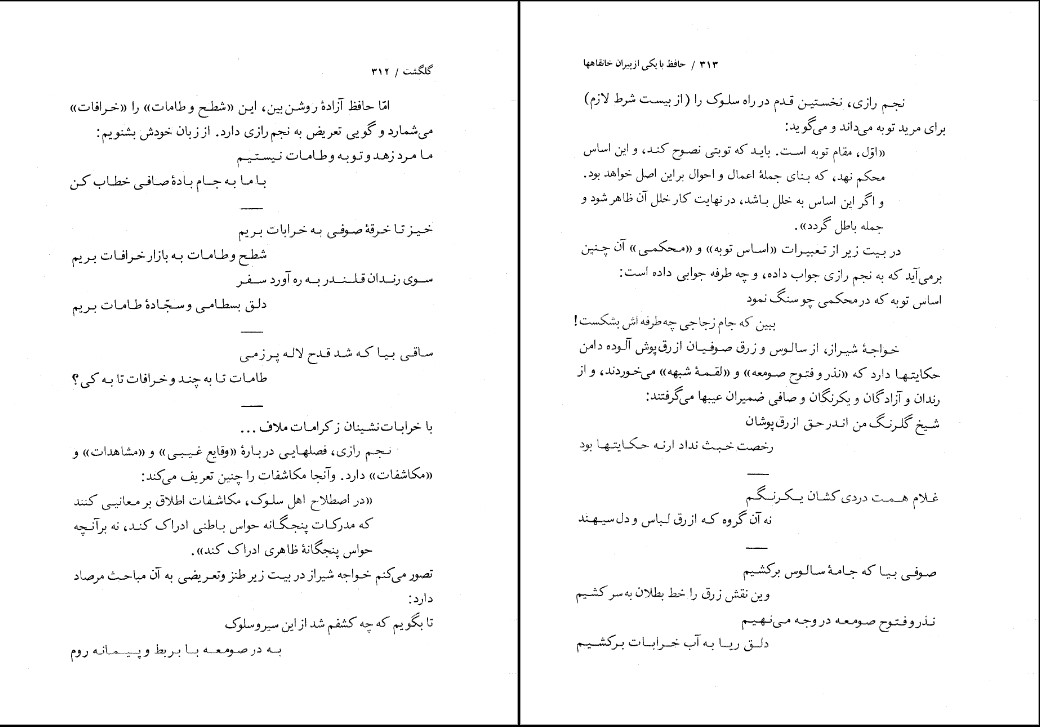 گلگشت / ۳۱۲
امّا حافظ آزادهٔ روشن‌بین، این «شطح و طامات» را «خرافات»
می‌شمارد و گویی تعریض به نجم رازی دارد. از زبان خودش بشنویم:
ما مرد زهد و توبه و طامات نیستیم
با ما به جام بادهٔ صافی خطاب کن
خیز تا خرقهٔ صوفی به خرابات بریم
شطح و طامات به بازار خرافات بریم
سوی رندان قلندر به ره آورد سفر
دلق بسطامی و سجّادهٔ طامات بریم
ساقی بیا که شد قدح لاله پر ز می
طامات تا به چند و خرافات تا به کی؟
با خرابات نشینان ز کرامات ملاف ...
نجم رازی، فصلهایی دربارهٔ «وقایع غیبی» و «مشاهدات» و
«مکاشفات» دارد. و آنجا مکاشفات را چنین تعریف می‌کند:
«در اصطلاح اهل سلوک، مکاشفات اطلاق بر معانیی کنند
که مدرکات پنجگانه حواس باطنی ادراک کند، نه برآنچه
حواس پنجگانهٔ ظاهری ادراک کند».
تصور می‌کنم خواجه شیراز در بیت زیر طنز وتعریضی به آن مباحث مرصاد
دارد:
تا بگویم که چه کشفم شد از این سیر و سلوک
به در صومعه با بربط و پیمانه روم
۳۱۳ / حافظ با یکی از پیران خانقاهها
نجم رازی، نخستین قدم در راه سلوک را (از بیست شرط لازم)
برای مرید توبه می‌داند و می‌گوید:
«اوّل، مقام توبه است. باید که توبتی نصوح کند، و این اساس
محکم نهد، که بنای جملهٔ اعمال و احوال بر این اصل خواهد بود.
و اگر این اساس به خلل باشد، در نهایت کار خلل آن ظاهر شود و
جمله باطل گردد».
در بیت زیر از تعبیرات «اساس توبه» و «محکمی» آن چنین
برمی‌آید که به نجم رازی جواب داده، و چه طرفه جوابی داده است:
اساس توبه که در محکمی چو سنگ نمود
ببین که جام زجاجی چه طرفه اش بشکست!
خواجهٔ شیراز، از سالوس و زرق صوفیان ازرق‌پوش آلوده دامن
حکایتها دارد که «نذر و فتوح صومعه» و «لقمهٔ شبهه» می‌خوردند، و از
رندان و آزادگان و یکرنگان و صافی ضمیران عیبها می‌گرفتند:
شیخ گلرنگ من اندر حق ازرق‌پوشان
رخصت خبث نداد ارنه حکایتها بود
غلام همت دردی کشان یکرنگم
نه آن گروه که ازرق لباس و دل سیهند
صوفی بیا که جامهٔ سالوس برکشیم
وین نقش زرق را خط بطلان به سر کشیم
نذر و فتوح صومعه در وجه می‌نهیم
دلق ریا به آب خرابات برکشیم